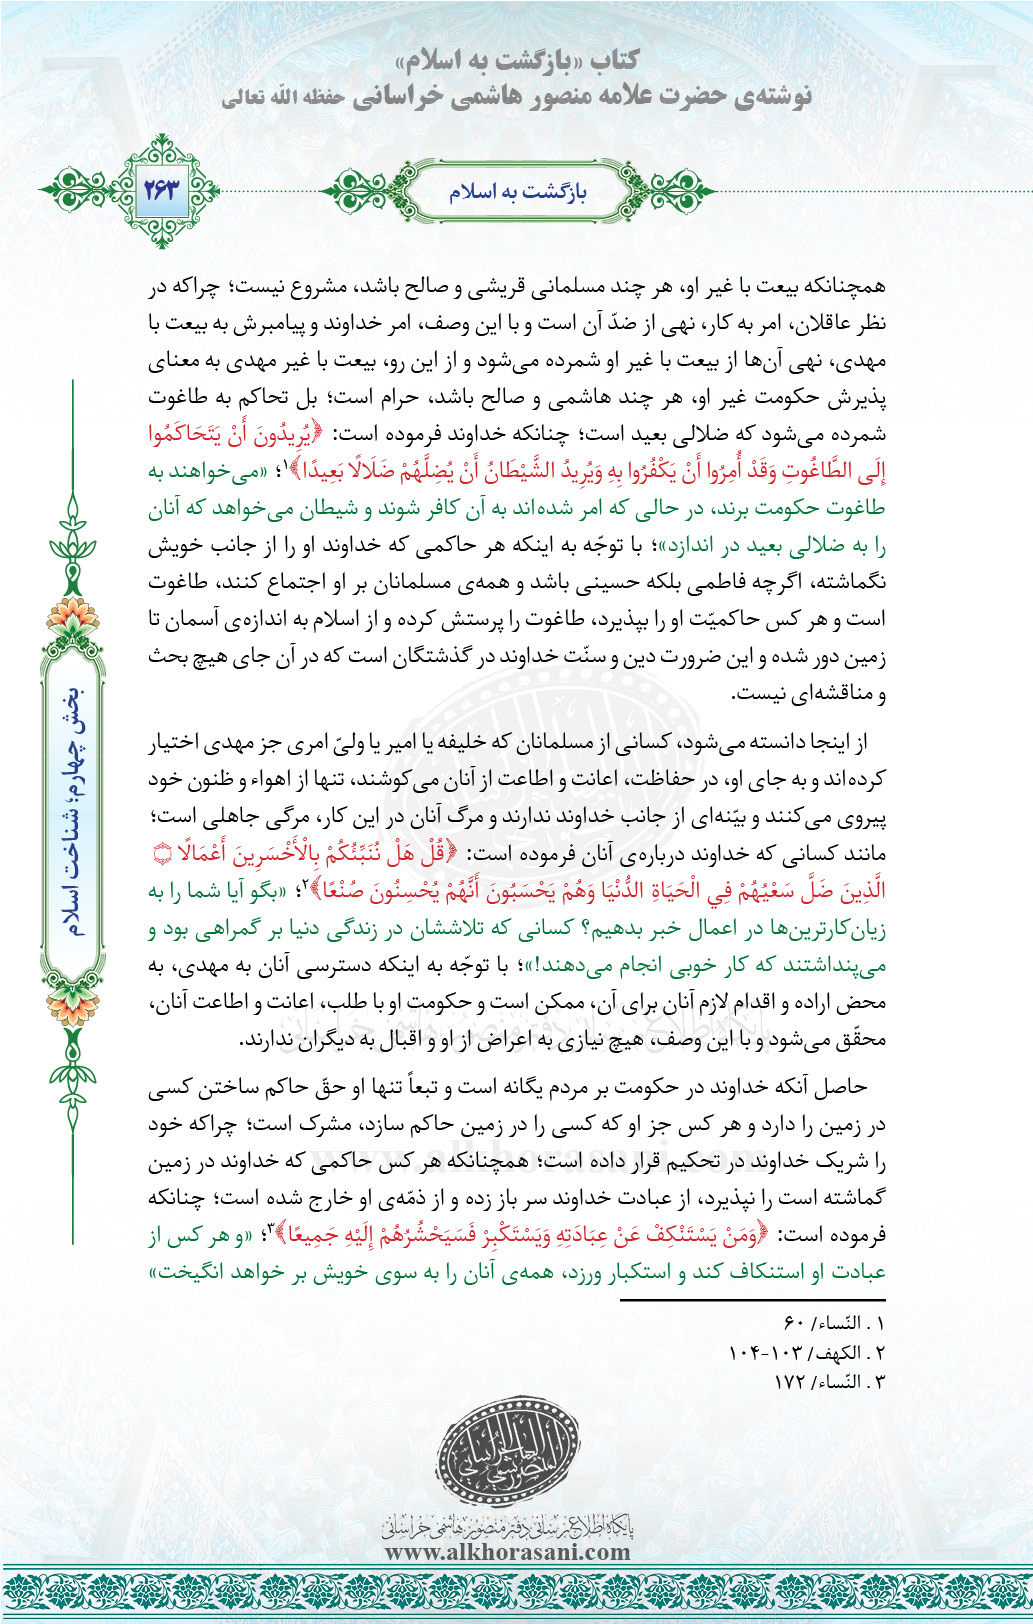 کتاب «بازگشت به اسلام»
نوشته‌ی حضرت علامه منصور هاشمی خراسانی حفظه الله تعالی
بازگشت به اسلام
۲۶۳
همچنانکه بیعت با غیر او، هر چند مسلمانی قریشی و صالح باشد، مشروع نیست؛ چراکه در
نظر عاقلان، امر به کار، نهی از ضدّ آن است و با این وصف، امر خداوند و پیامبرش به بیعت با
مهدی، نهی آن‌ها از بیعت با غیر او شمرده می‌شود و از این رو، بیعت با غیر مهدی به معنای
پذیرش حکومت غیر او، هر چند هاشمی و صالح باشد، حرام است؛ بل تحاکم به طاغوت
شمرده می‌شود که ضلالی بعید است؛ چنانکه خداوند فرموده است: ﴿يُرِيدُونَ أَنْ يَتَحَاكَمُوا
إِلَى الطَّاغُوتِ وَقَدْ أُمِرُوا أَنْ يَكْفُرُوا بِهِ وَيُرِيدُ الشَّيْطَانُ أَنْ يُضِلَّهُمْ ضَلَالًا بَعِيدًا﴾۱؛ «می‌خواهند به
طاغوت حکومت برند، در حالی که امر شده‌اند به آن کافر شوند و شیطان می‌خواهد که آنان
را به ضلالی بعید در اندازد»؛ با توجّه به اینکه هر حاکمی که خداوند او را از جانب خویش
نگماشته، اگرچه فاطمی بلکه حسینی باشد و همه‌ی مسلمانان بر او اجتماع کنند، طاغوت
است و هر کس حاکمیّت او را بپذیرد، طاغوت را پرستش کرده و از اسلام به اندازه‌ی آسمان تا
زمین دور شده و این ضرورت دین و سنّت خداوند در گذشتگان است که در آن جای هیچ بحث
و مناقشه‌ای نیست.
از اینجا دانسته می‌شود، کسانی از مسلمانان که خلیفه یا امیر یا ولیّ امری جز مهدی اختیار
کرده‌اند و به جای او، در حفاظت، اعانت و اطاعت از آنان می‌کوشند، تنها از اهواء و ظنون خود
پیروی می‌کنند و بیّنه‌ای از جانب خداوند ندارند و مرگ آنان در این کار، مرگی جاهلی است؛
مانند کسانی که خداوند درباره‌ی آنان فرموده است: ﴿قُلْ هَلْ نُنَبِّئُكُمْ بِالْأَخْسَرِينَ أَعْمَالًا ۝
الَّذِينَ ضَلَّ سَعْيُهُمْ فِي الْحَيَاةِ الدُّنْيَا وَهُمْ يَحْسَبُونَ أَنَّهُمْ يُحْسِنُونَ صُنْعًا﴾۲؛ «بگو آیا شما را به
زیان‌کارترین‌ها در اعمال خبر بدهیم؟ کسانی که تلاششان در زندگی دنیا بر گمراهی بود و
می‌پنداشتند که کار خوبی انجام می‌دهند!»؛ با توجّه به اینکه دسترسی آنان به مهدی، به
محض اراده و اقدام لازم آنان برای آن، ممکن است و حکومت او با طلب، اعانت و اطاعت آنان،
محقّق می‌شود و با این وصف، هیچ نیازی به اعراض از او و اقبال به دیگران ندارند.
حاصل آنکه خداوند در حکومت بر مردم یگانه است و تبعاً تنها او حقّ حاکم ساختن کسی
در زمین را دارد و هر کس جز او که کسی را در زمین حاکم سازد، مشرک است؛ چراکه خود
را شریک خداوند در تحکیم قرار داده است؛ همچنانکه هر کس حاکمی که خداوند در زمین
گماشته است را نپذیرد، از عبادت خداوند سر باز زده و از ذمّه‌ی او خارج شده است؛ چنانکه
فرموده است: ﴿وَمَنْ يَسْتَنْكِفْ عَنْ عِبَادَتِهِ وَيَسْتَكْبِرْ فَسَيَحْشُرُهُمْ إِلَيْهِ جَمِيعًا﴾۳؛ «و هر کس از
عبادت او استنکاف کند و استکبار ورزد، همه‌ی آنان را به سوی خویش بر خواهد انگیخت»
۱ . النّساء/ ۶۰
۲ . الکهف/ ۱۰۳-۱۰۴
۳ . النّساء/ ۱۷۲
بخش چهارم؛ شناخت اسلام
پایگاه اطلاع‌رسانی دفتر منصور هاشمی خراسانی
www.alkhorasani.com
پایگاه اطلاع‌رسانی دفتر منصور هاشمی خراسانی
www.alkhorasani.com